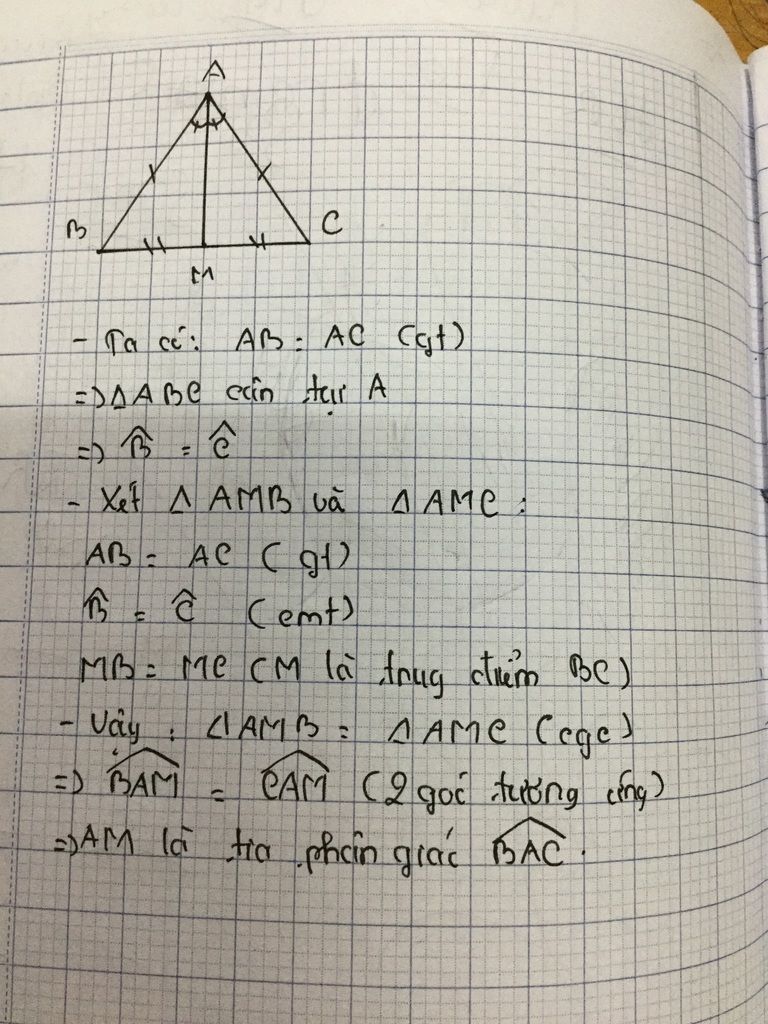 A
B
C
M
- Ta có: AB = AC (gt)
=> Δ ABC cân tại A
=> B̂ = Ĉ
- Xét Δ AMB và Δ AMC :
AB = AC (gt)
B̂ = Ĉ (cmt)
MB = MC (M là trug điểm BC)
- Vậy : Δ AMB = Δ AMC (cgc)
=> BAM = CAM (2 goć tương ứng)
=> AM là tia phân giác BAC.